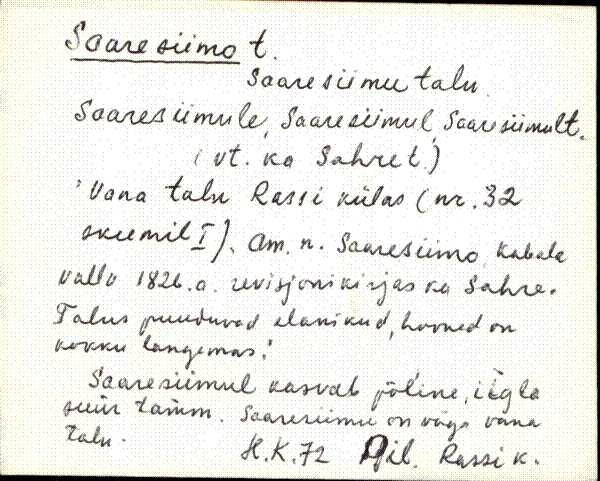 Saaresiimo t.
Saaresiimu talu.
Saaresiimule, Saaresiimul, Saaresiimult.
(vt. ka Sahre t.)
'Vana talu Rassi külas (nr. 32
skeemil I). Am. n. Saaresiimo, Kabala
valla 1826.a. revisjonikirjas ka Sahre.
Talus puuduvad elanikud, hooned on
kokku langemas.'
Saaresiimul kasvab põline, iigla
suur tamm. Saaresiimu on väga vana
talu.
H.K.72 Pil. Rassi k.